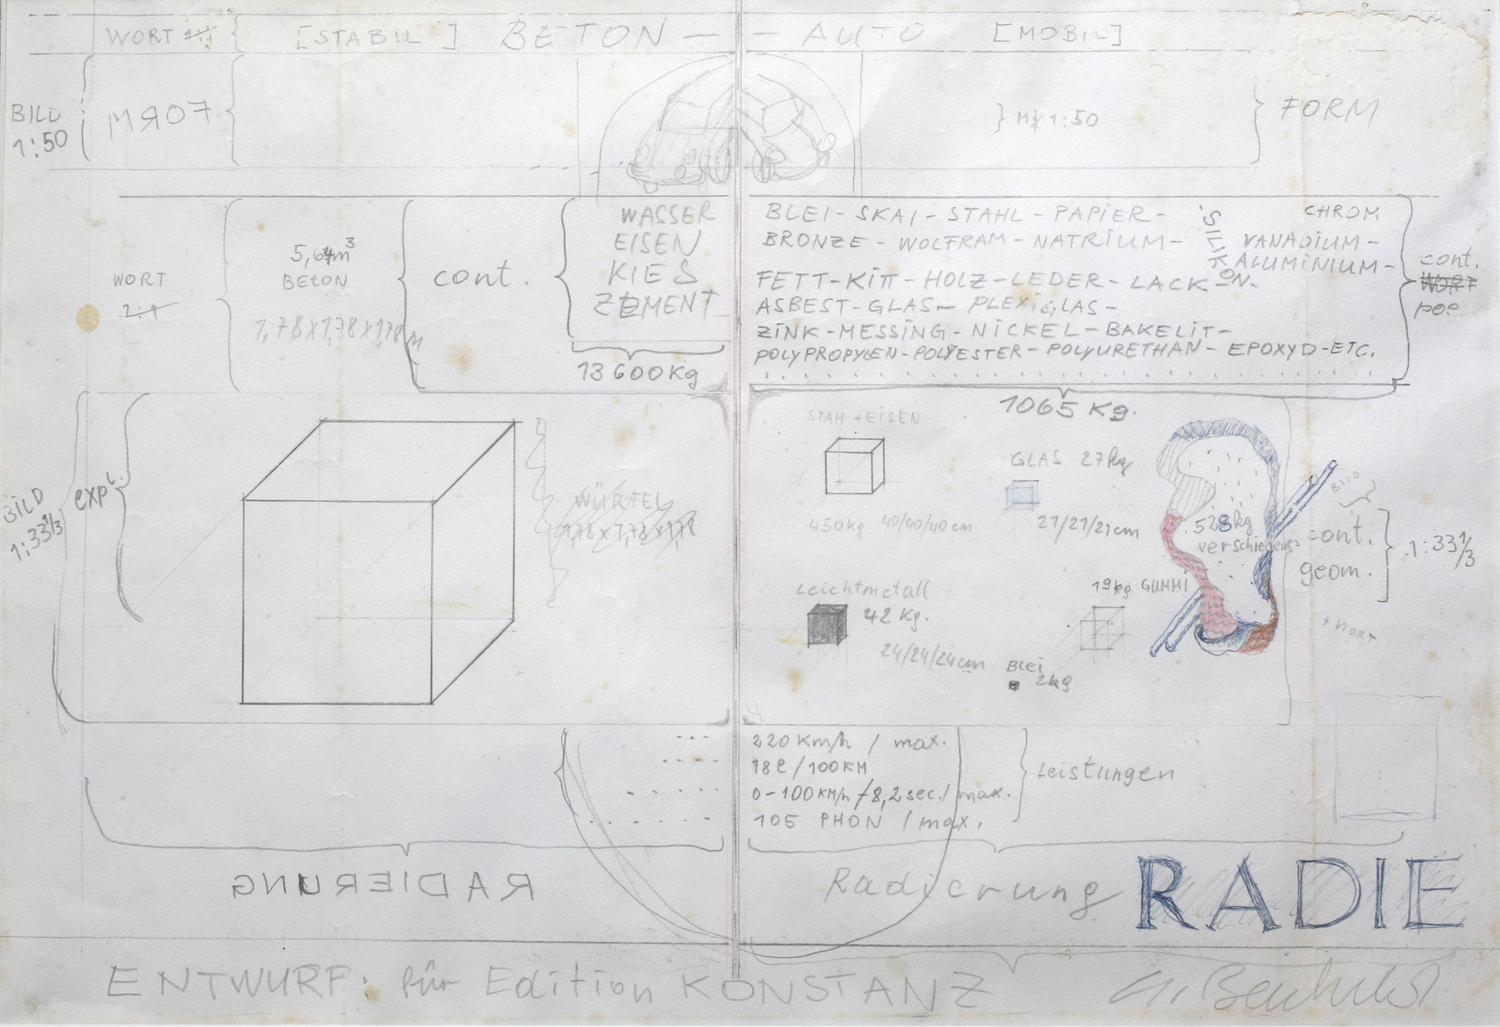 WORT 1:1 [STABIL] BETON — — AUTO [MOBIL]
BILD
1:50
FORM
M 1:50
FORM
WORT
2:1
5,64m³
BETON
1,78x1,78x1,78m
cont.
WASSER
EISEN
KIES
ZEMENT
13600Kg
BLEI - SKAI - STAHL - PAPIER -
BRONZE - WOLFRAM - NATRIUM -
SILIKON.
CHROM
VANADIUM -
ALUMINIUM -
FETT - KITT - HOLZ - LEDER - LACK
ASBEST - GLAS - PLEXIGLAS -
ZINK - MESSING - NICKEL - BAKELIT -
POLYPROPYLEN - POLYESTER - POLYURETHAN - EPOXYD - ETC.
cont.
WORT
poe.
1065 Kg.
BILD
1:33⅓
expl.
WÜRFEL
1,78x1,78x1,78
STAH + EISEN
450kg. 40/40/40 cm
GLAS 27kg
21/21/21cm
Leichtmetall
42 Kg.
24/24/24cm
19kg GUMMI
Blei
2kg
528kg
verschiedenes
Bild
cont.
geom.
1:33⅓
+ Wort
220 Km/h / max.
18l / 100KM
0-100KM/h - 8,2sec. / max.
105 PHON / max.
Leistungen
RADIERUNG
Radierung
RADIE
ENTWURF: für Edition KONSTANZ